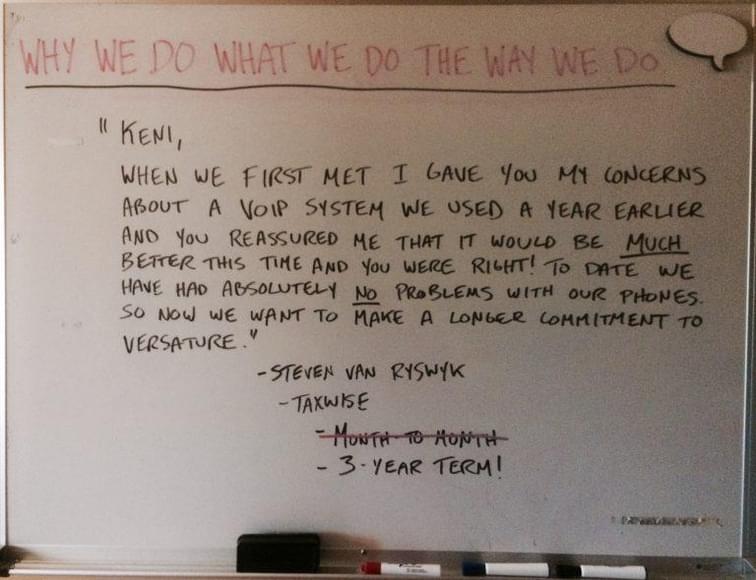 WHY WE DO WHAT WE DO THE WAY WE DO
"KENI,
WHEN WE FIRST MET I GAVE YOU MY CONCERNS
ABOUT A VOIP SYSTEM WE USED A YEAR EARLIER
AND YOU REASSURED ME THAT IT WOULD BE MUCH
BETTER THIS TIME AND YOU WERE RIGHT! TO DATE WE
HAVE HAD ABSOLUTELY NO PROBLEMS WITH OUR PHONES.
SO NOW WE WANT TO MAKE A LONGER COMMITMENT TO
VERSATURE."
-STEVEN VAN RYSWYK
-TAXWISE
-MONTH-TO MONTH
- 3-YEAR TERM!